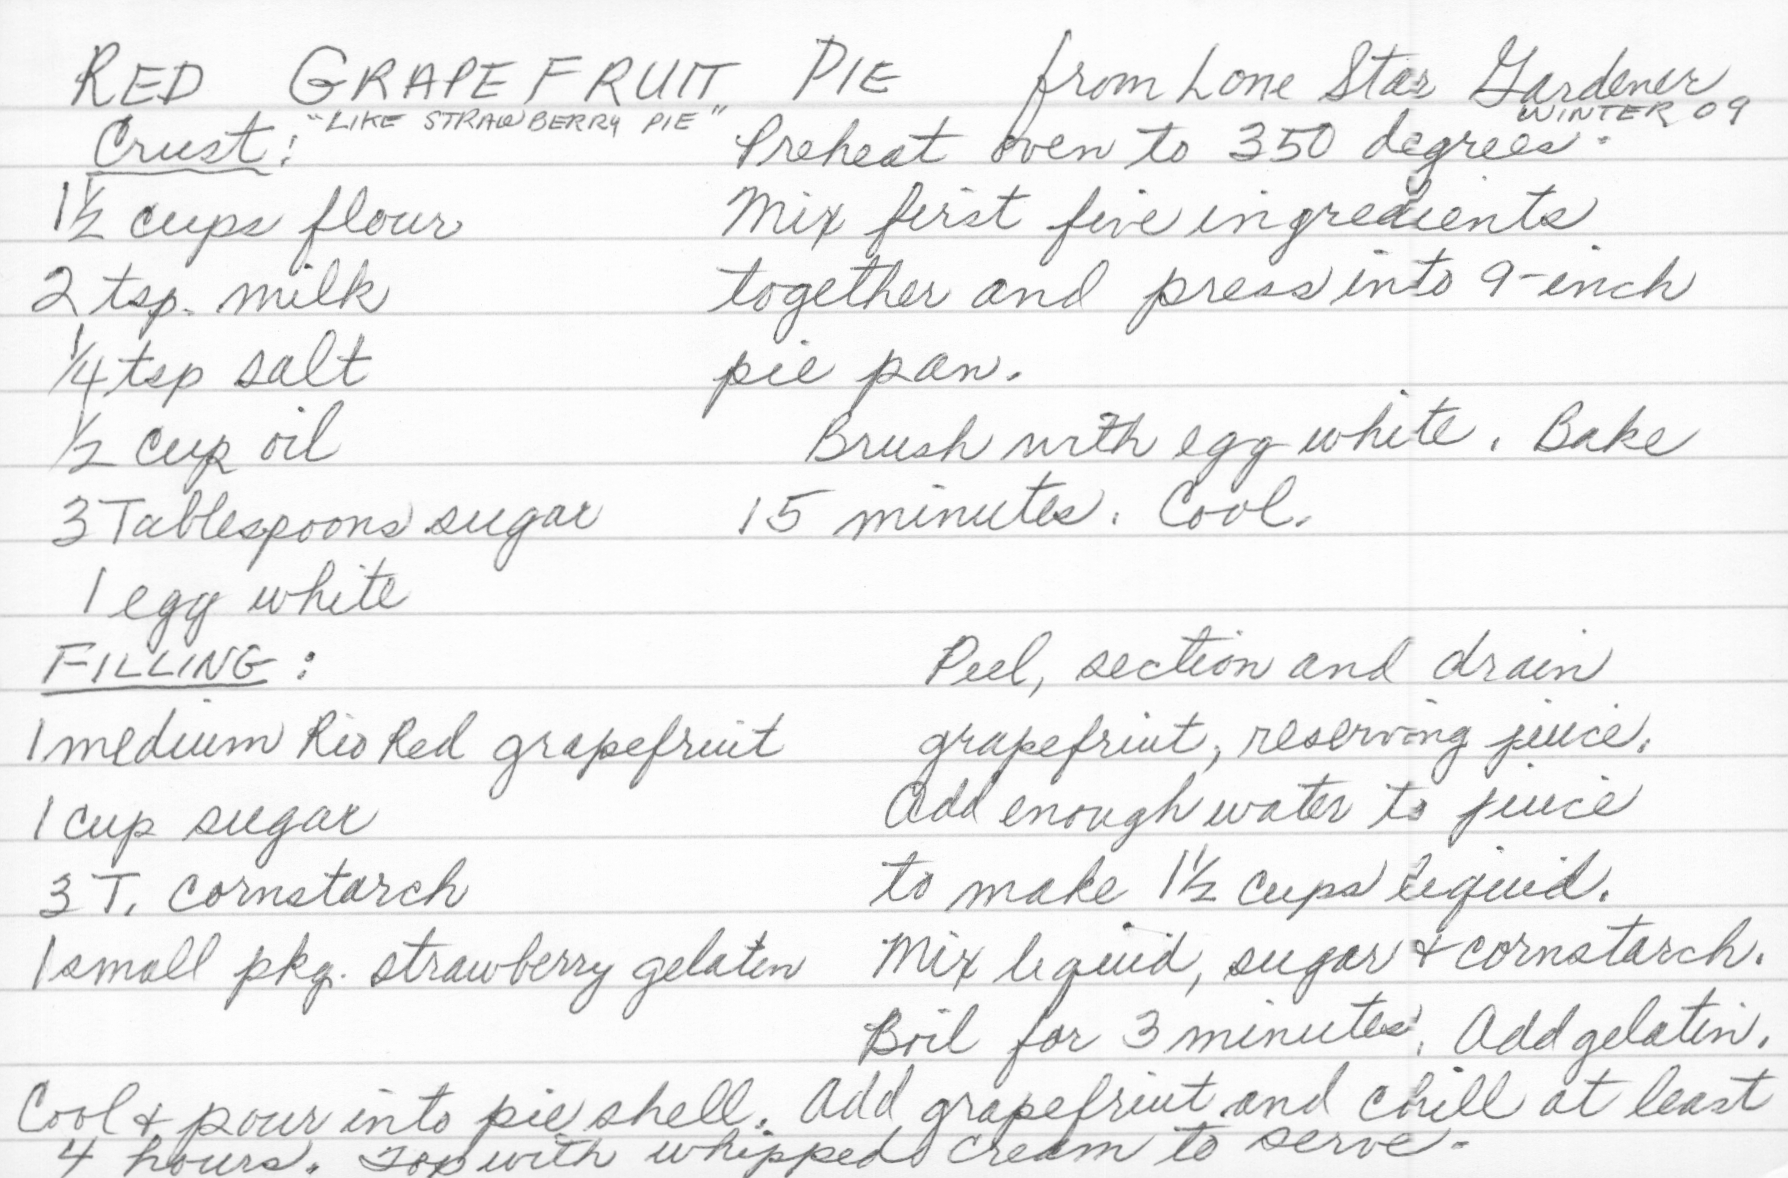 RED GRAPEFRUIT PIE from Lone Star Gardener
"LIKE STRAWBERRY PIE" WINTER 09
Crust:
1½ cups flour
2 tsp. milk
¼ tsp salt
½ cup oil
3 Tablespoons sugar
1 egg white
Preheat oven to 350 degrees.
Mix first five ingredients
together and press into 9-inch
pie pan.
Brush with egg white. Bake
15 minutes. Cool.
FILLING:
1 medium Rio Red grapefruit
1 cup sugar
3 T. cornstarch
1 small pkg. strawberry gelatin
Peel, section and drain
grapefruit, reserving juice.
Add enough water to juice
to make 1½ cups liquid.
Mix liquid, sugar & cornstarch.
Boil for 3 minutes. Add gelatin.
Cool & pour into pie shell. Add grapefruit and chill at least
4 hours. Top with whipped cream to serve.